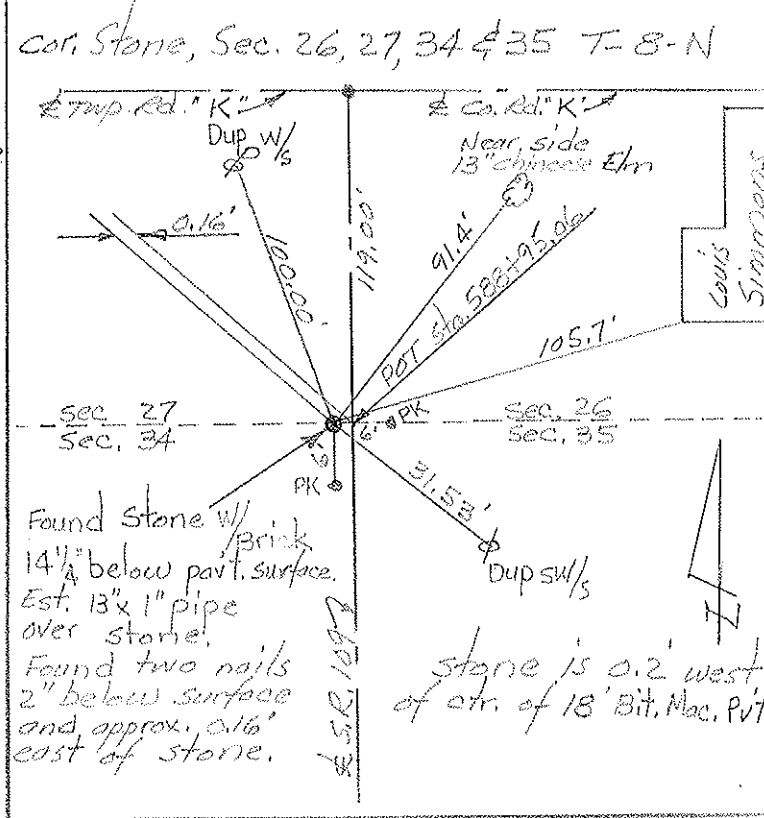 Cor. Stone, Sec. 26, 27, 34 & 35 T-8-N
℄ Twp. Rd. "K"
℄ Co. Rd. "K"
Dup W/s
Near side
13" chineese Elm
0.16'
100.00'
119.00'
91.4'
POT Sta. 588+95.06
105.7'
Louis
Simmons
Sec. 27
Sec. 34
6'
PK
Sec. 26
Sec. 35
6'
PK
31.53'
Dup SW/s
Found Stone W/
Brick
14 1/4" below pav't. surface.
Est. 13" x 1" pipe
over stone.
Found two nails
2" below surface
and approx. 0.16'
east of stone.
℄ S.R. 109
Stone is 0.2' west
of ctr. of 18' Bit. Mac. Pv't